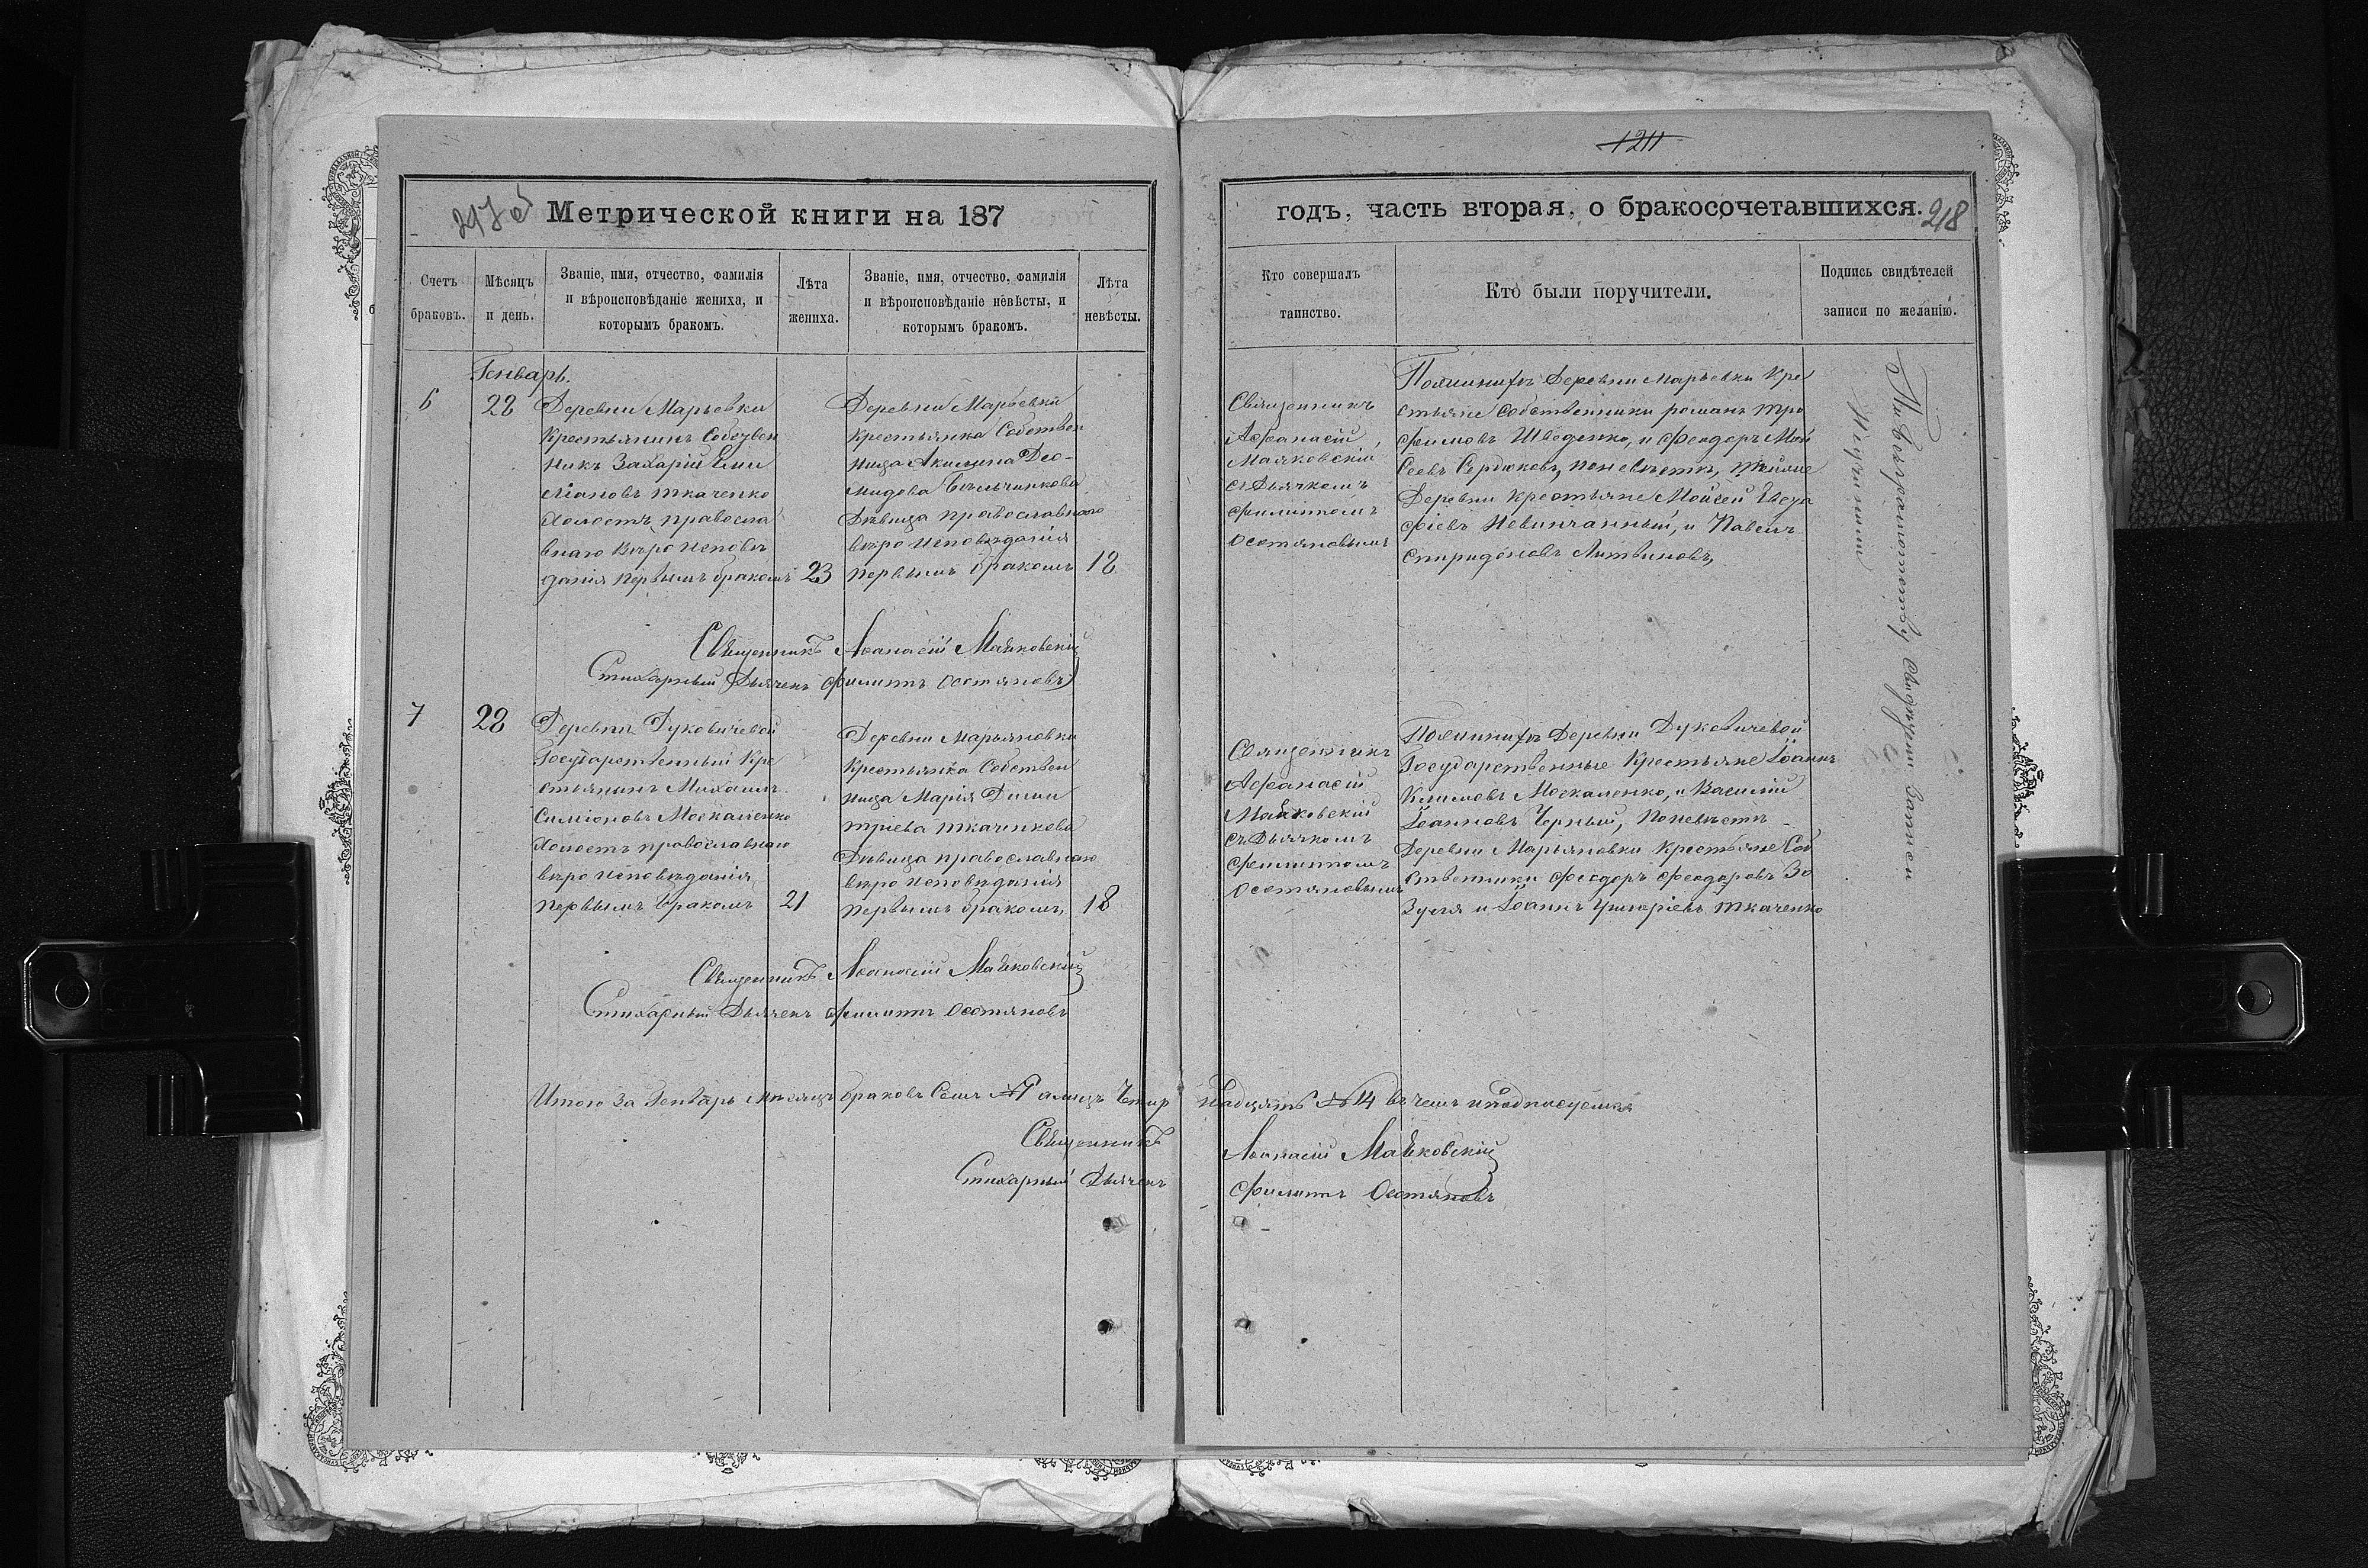 1211
217 об
Метрической книги на 187
годъ, часть вторая, о бракосочетавшихся.
218
Счетъ браковъ.
Мѣсяцъ и день.
Званіе, имя, отчество, фамилія
и вѣроисповѣданіе жениха, и
которымъ бракомъ.
Лѣта жениха.
Званіе, имя, отчество, фамилія
и вѣроисповѣданіе невѣсты, и
которымъ бракомъ.
Лѣта невѣсты.
Кто совершалъ
таинство.
Кто были поручители.
Подпись свидѣтелей
записи по желанію.
Генварь.
6
28
Деревни Марьевки
Крестьянинъ Собствен
никъ Захарій Еми
ліановъ Ткаченко
Холостъ, правосла
внаго вѣро исповѣ
данія первымъ бракомъ
23
Деревни Марьевки
Крестьянка Собствен
ница Акилина Део-
мидова
Дѣвица православного
вѣро исповѣданія
первымъ бракомъ
18
Священникъ
Афанасій
Маяковскій
съ Дьячкомъ
Филиппомъ
Остяновымъ
По женихѣ Деревни Марьевки Кре
стьяне Собственники Романъ Тро
фимовъ Шведенко, и Феодоръ Мои
сеевъ Сердюковъ, по невѣстѣ, тойже
Деревни Крестьяне Моисей
фіевъ Невинчанный, и Павелъ
Спиридоновъ Литвиновъ,
Священникъ Афанасій Маяковскій
Стихарный Дьячекъ Филиппъ Остяновъ
7
28
Деревни Дуковичевой
Государственный Кре
стьянинъ Михаилъ
Симіоновъ Москаленко
Холостъ православнаго
вѣро исповѣданія
первымъ бракомъ
21
Деревни Марьяновки
Крестьянка Собствен
ница Марія Дими
тріева Ткаченкова
Дѣвица православнаго
вѣро исповѣданія
первымъ бракомъ,
18
Священникъ
Афанасій
Маяковскій
съ Дьячкомъ
Филиппомъ
Остяновымъ
По женихѣ Деревни Дуковичевой
Государственные Крестьяне Іоаннъ
Климовъ Москаленко, и Василій
Іоанновъ Черный, По невѣстѣ
Деревни Марьяновки Крестьяне Соб
ственники Феодоръ Феодоровъ Зо
зуля и Іоаннъ Григоріевъ Ткаченко
По безграмотству свидѣтели записи
Священникъ Афанасій Маяковскій
Стихарный Дьячекъ Филиппъ Остяновъ
Итого за Генварь мѣсяцъ браковъ Семь № 7 а лицъ Четыр
надцять № 14 въ чемъ и подписуемся
Священникъ Афанасій Маяковскій
Стихарный Дьячекъ Филиппъ Остяновъ